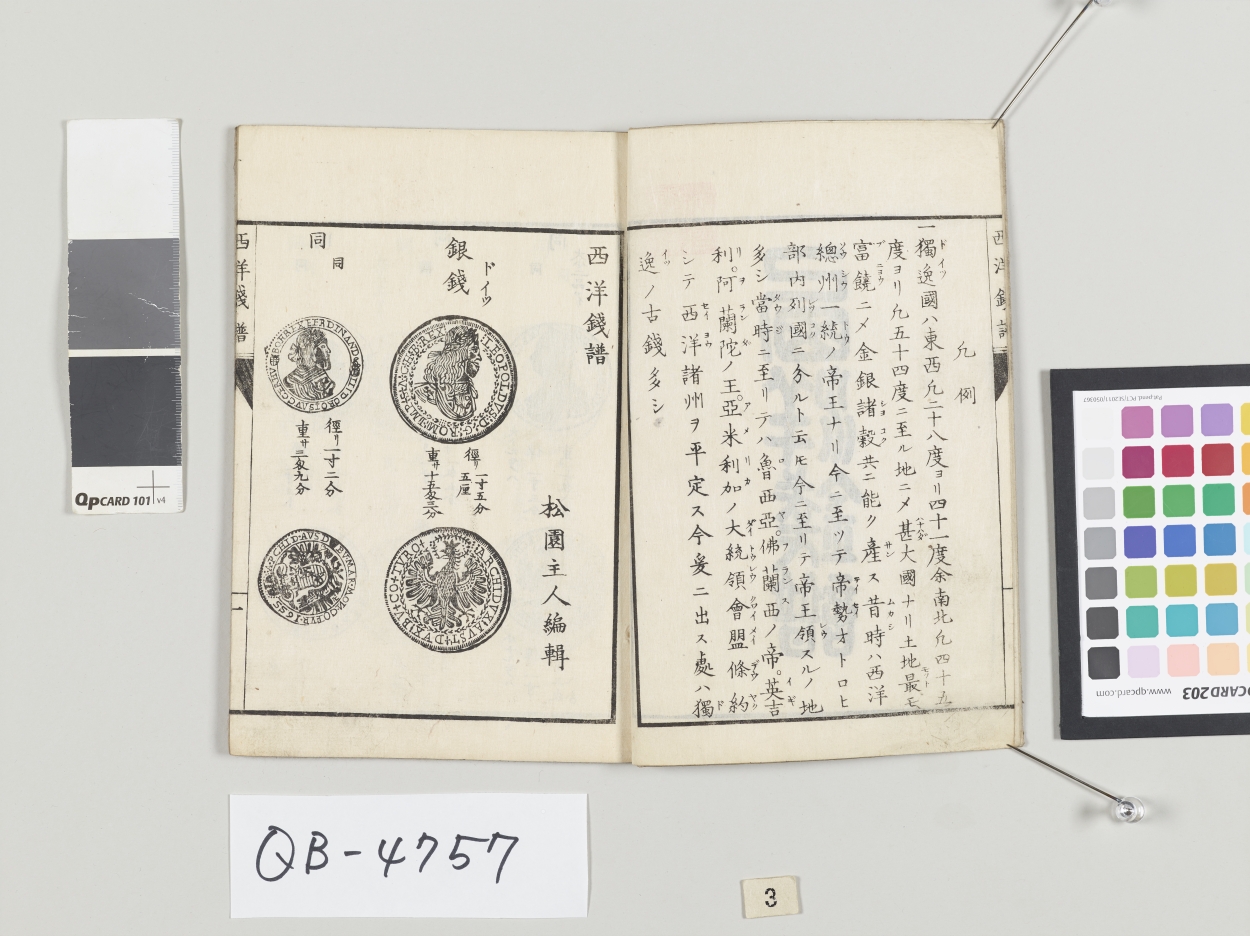 西洋錢譜
凡例
一獨逸國ハ東西凡二十八度ヨリ四十一度余南北凡四十五
度ヨリ凡五十四度ニ至ル地ニメ甚大國ナリ土地最モ
富饒ニメ金銀諸穀共ニ能ク產ス昔時ハ西洋
總州一統ノ帝王ナリ今ニ至ツテ帝勢オトロヒ
部内列國ニ分ルト云𪜈今ニ至リテ帝王領スルノ地
多シ當時ニ至リテハ魯西亞。佛蘭西ノ帝。英吉
利。阿蘭陀ノ王。亞米利加ノ大統領會盟條約
シテ西洋諸州ヲ平定ス今爰ニ出ス處ハ獨
逸ノ古錢多シ
西洋錢譜
松園主人編輯
銀錢
ドイツ
徑リ一寸五分
五厘
重サ十五匁三分
同
同
徑リ一寸二分
重サ三匁九分
西洋錢譜
一
QPCARD 101 v4
QPCARD203
www.qpcard.com
QB-4757
3